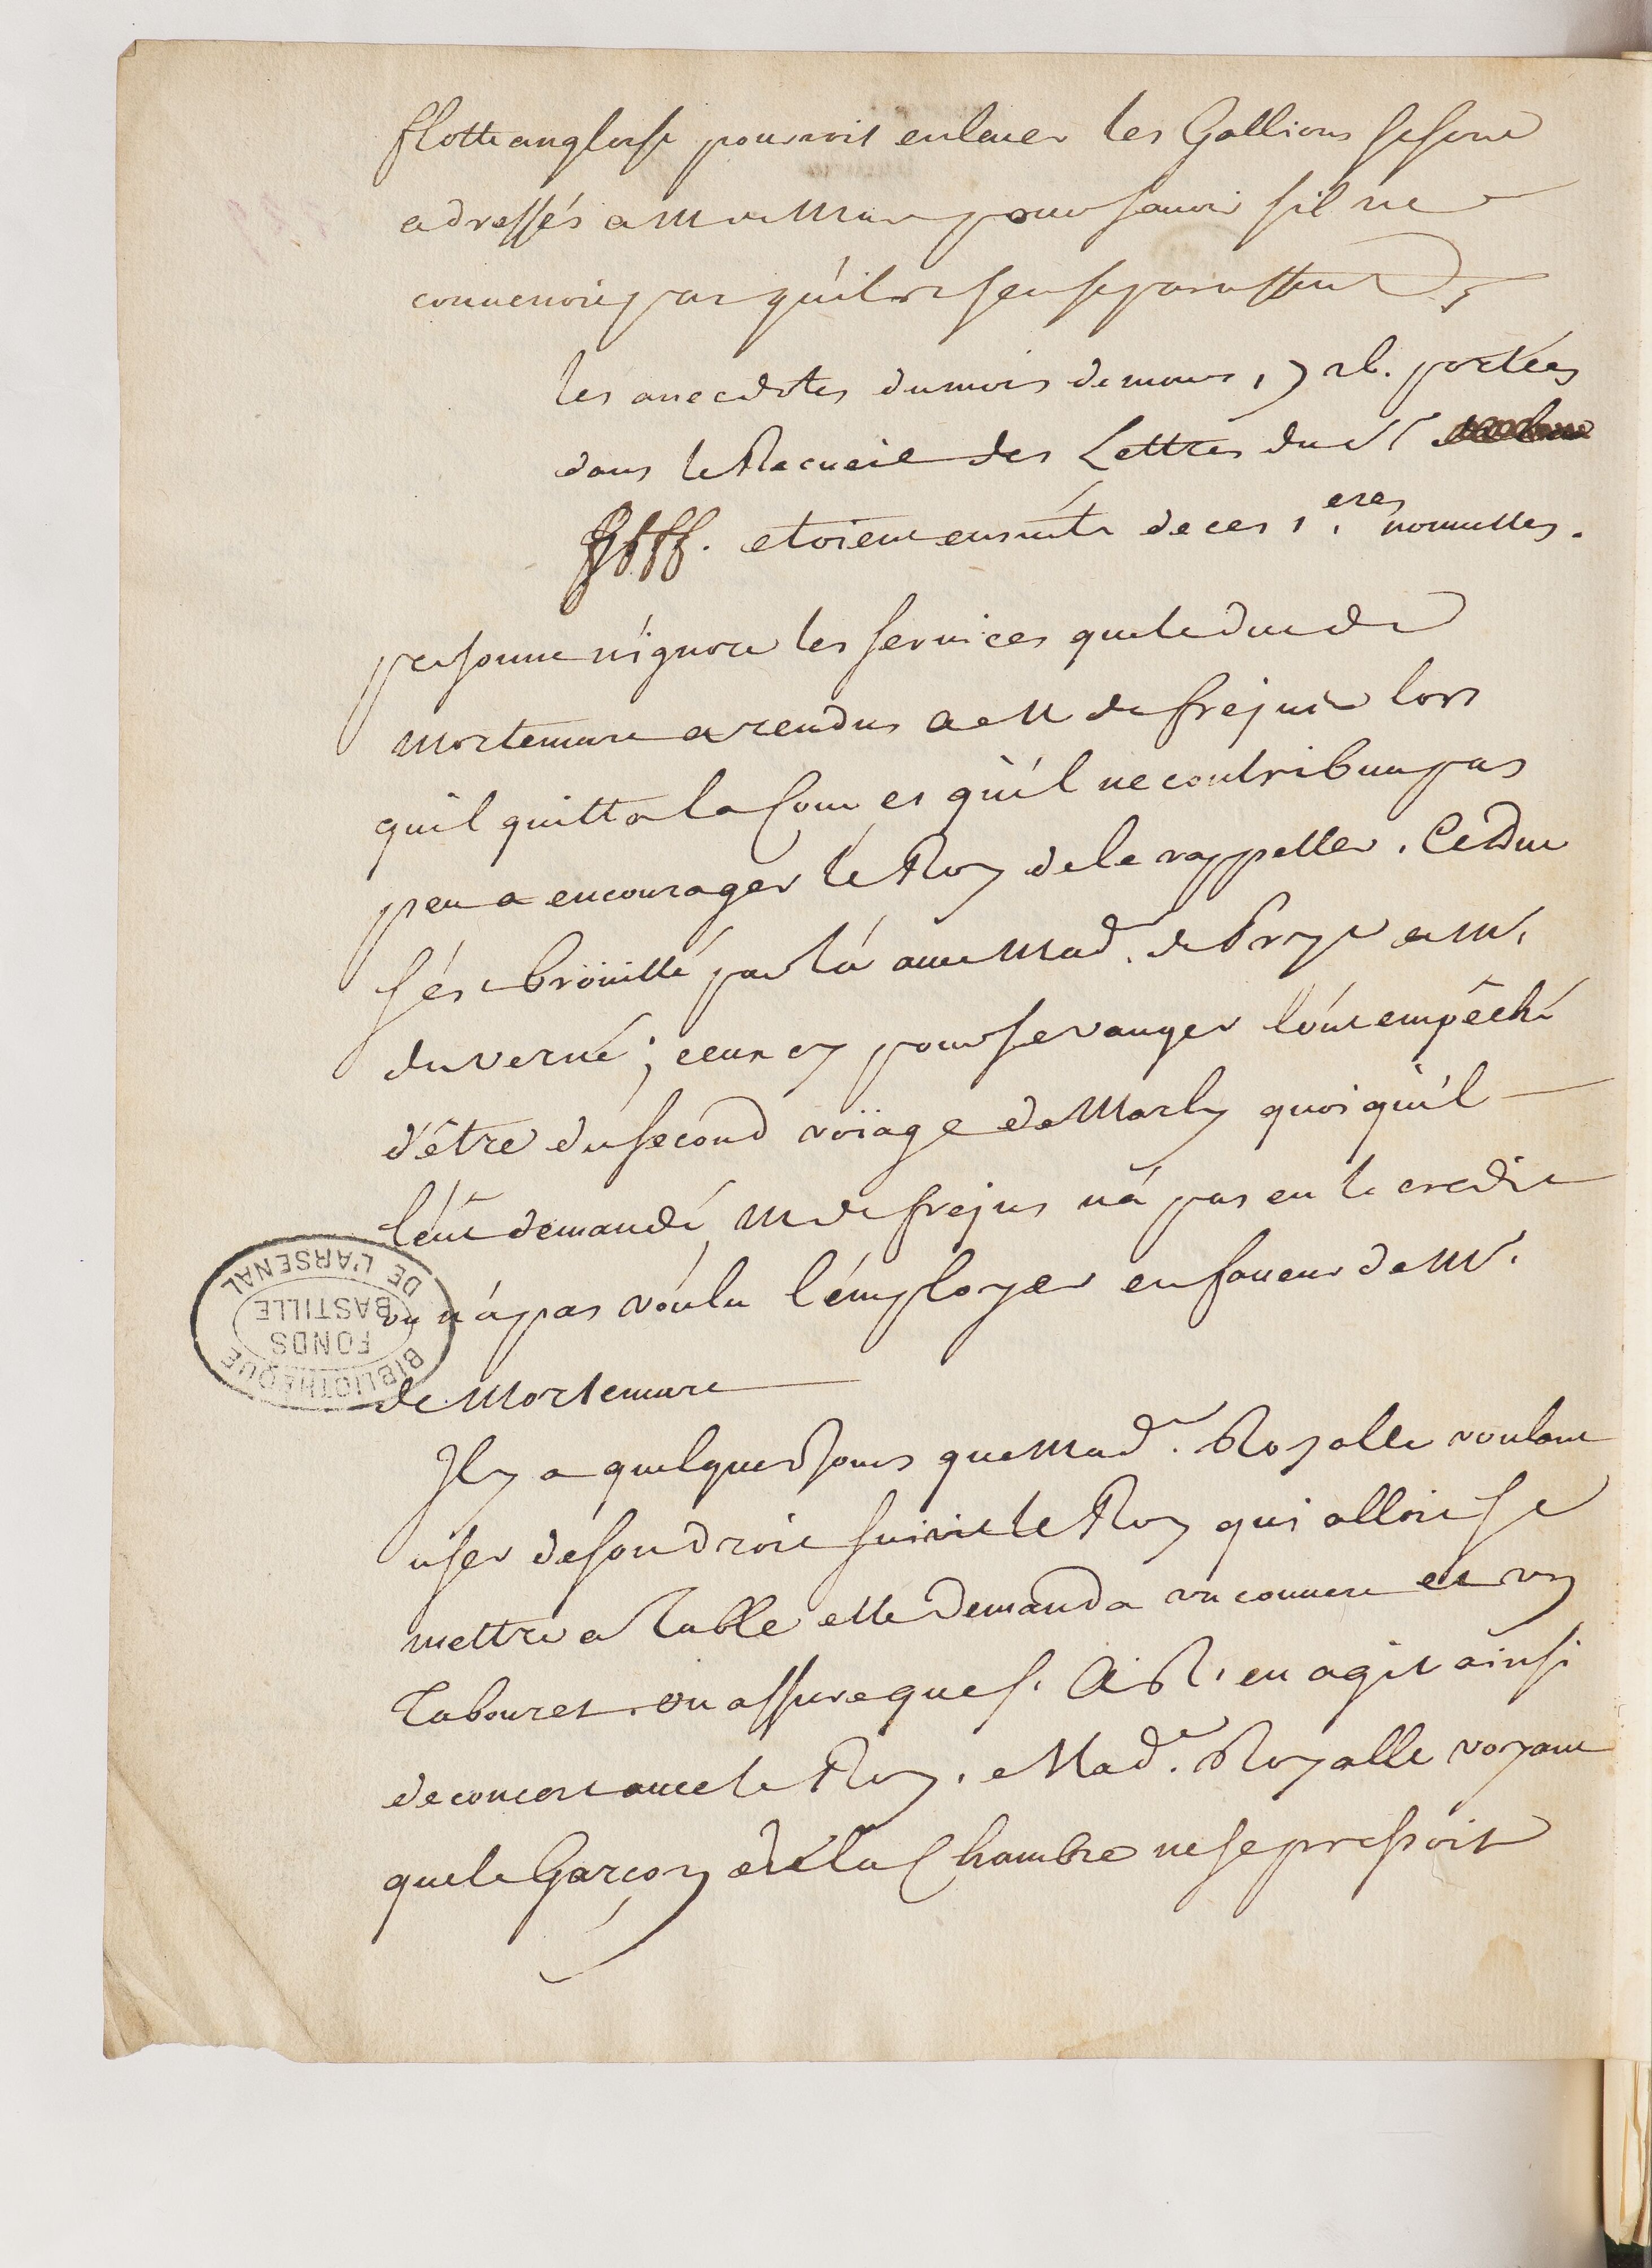 flotte angloise pourroit enlever les Gallions se sont
adressés a M de pour savoir s'il ne
convenoit pas qu'ils s'en
les anecdotes du mois de mars, portées
dans le Recueil des Lettres du Sr
etoient ensuite de ces 1.eres nouvelles.
personne n'ignore les services que le duc de
Mortemare a rendus a M de frejus lors
qu'il quitta la Cour et qu'il ne contribua pas
peu a encourager le Roy de le rappeller. Ce Duc
s'est broüillé par là avec Mad.e de Prye et M.
du verné; ceux cy pour se vanger l'ont empêché
d'être du second voïage de Marly quoi qu'il
l'eût demandé, M de frejus n'a pas eu le credit
ou n'a pas voulu l'employer en faveur de M.
de Mortemare
Il y a quelques Jours que Mad.e Royalle voulant
user de son droit suivit le Roy qui alloit se
mettre a Table elle demanda un couvert et un
Tabouret. on assure que S. A. R. en agit ainsi
de concert avec le Roy. Mad.e Royalle voyant
que le Garçon de la Chambre ne se pressoit
BIBLIOTHEQUE
DE L'ARSENAL
FONDS
BASTILLE